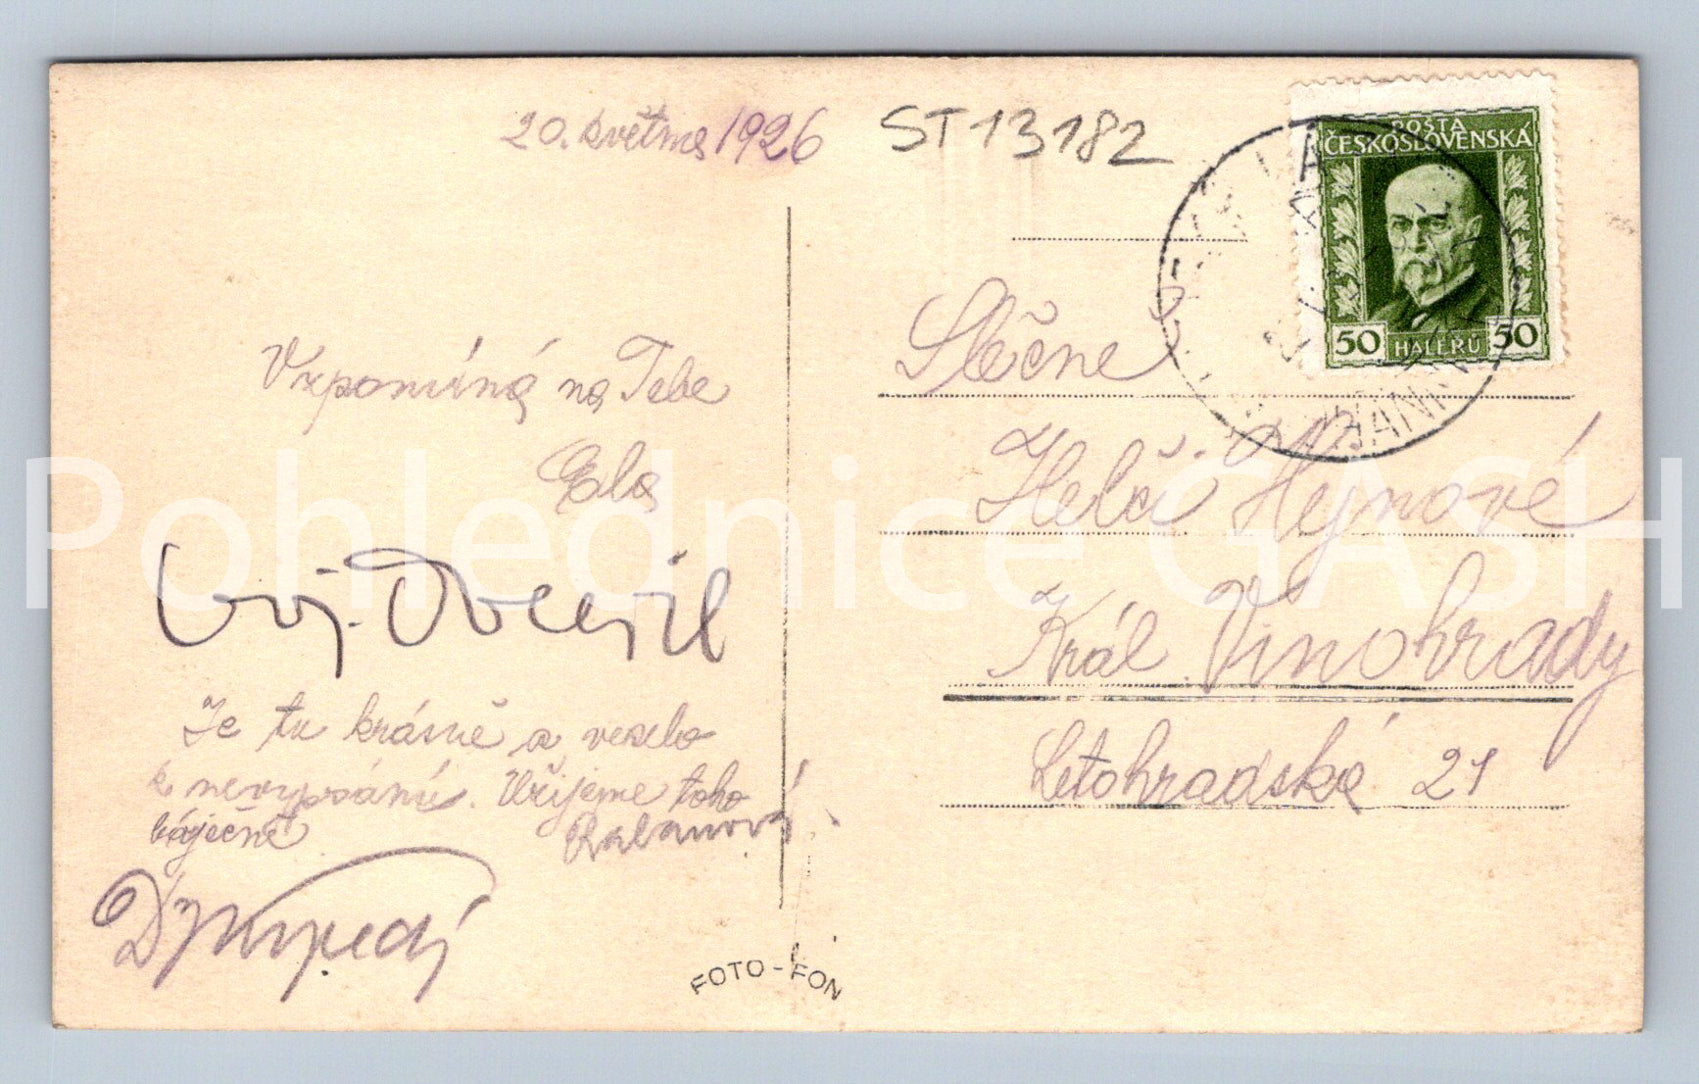 20. května 1926
ST 13182
POŠTA
ČESKOSLOVENSKÁ
50 HALÉŘŮ 50
Vzpomíná na Tebe
Ela
Je tu krásně a veselo
k nevypsání. Užijeme toho
báječně
Slečně
Helči Hejnové
Král. Vinohrady
Letohradská 21
FOTO-FON
Pohlednice GASH